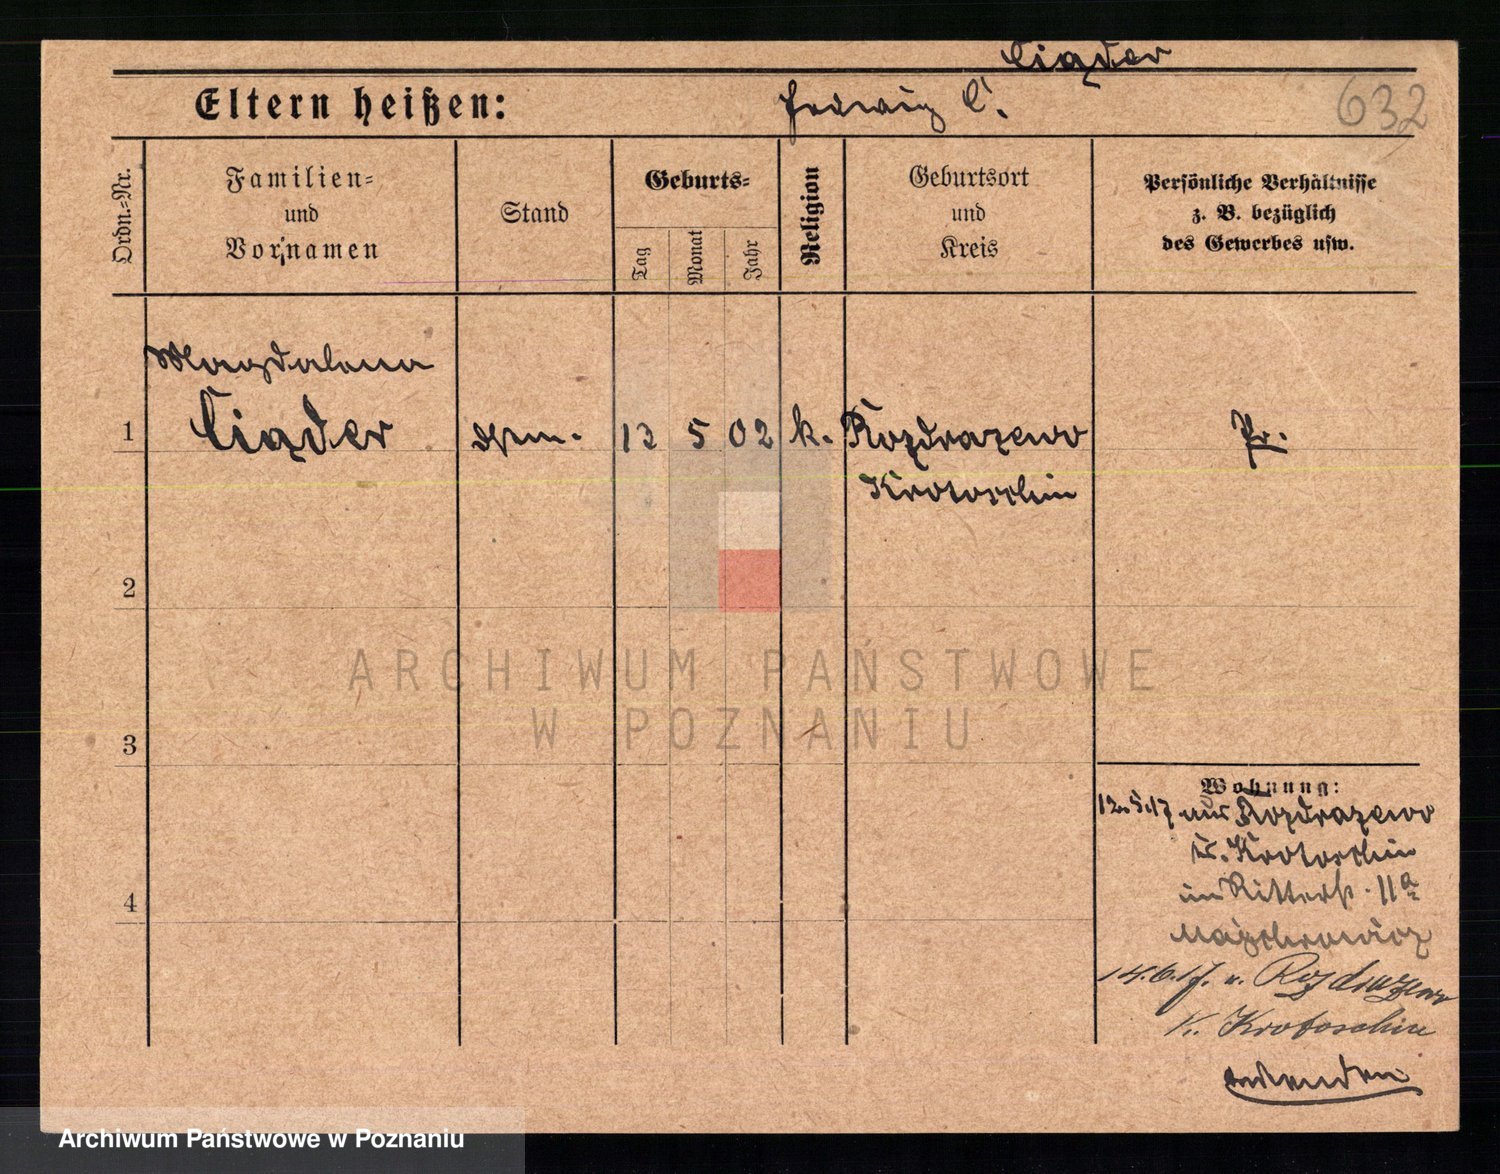 Ciąder
Eltern heißen:
Hedwig C.
632
Ordn.-Nr.
Familien-
und
Vornamen
Stand
Geburts-
Tag
Monat
Jahr
Religion
Geburtsort
und
Kreis
Persönliche Verhältnisse
z. B. bezüglich
des Gewerbes usw.
Magdalena
1 Ciąder 13 5 02 k. Rozdrazewo Pr.
Krotoschin
2
ARCHIWUM PAŃSTWOWE
W POZNANIU
3
Wohnung:
12.5.17 aus Rozdrazewo
Kr. Krotoschin
in Ritterst. 11a
4
14.6.17. n. Rozdrazewo
K. Krotoschin
Archiwum Państwowe w Poznaniu